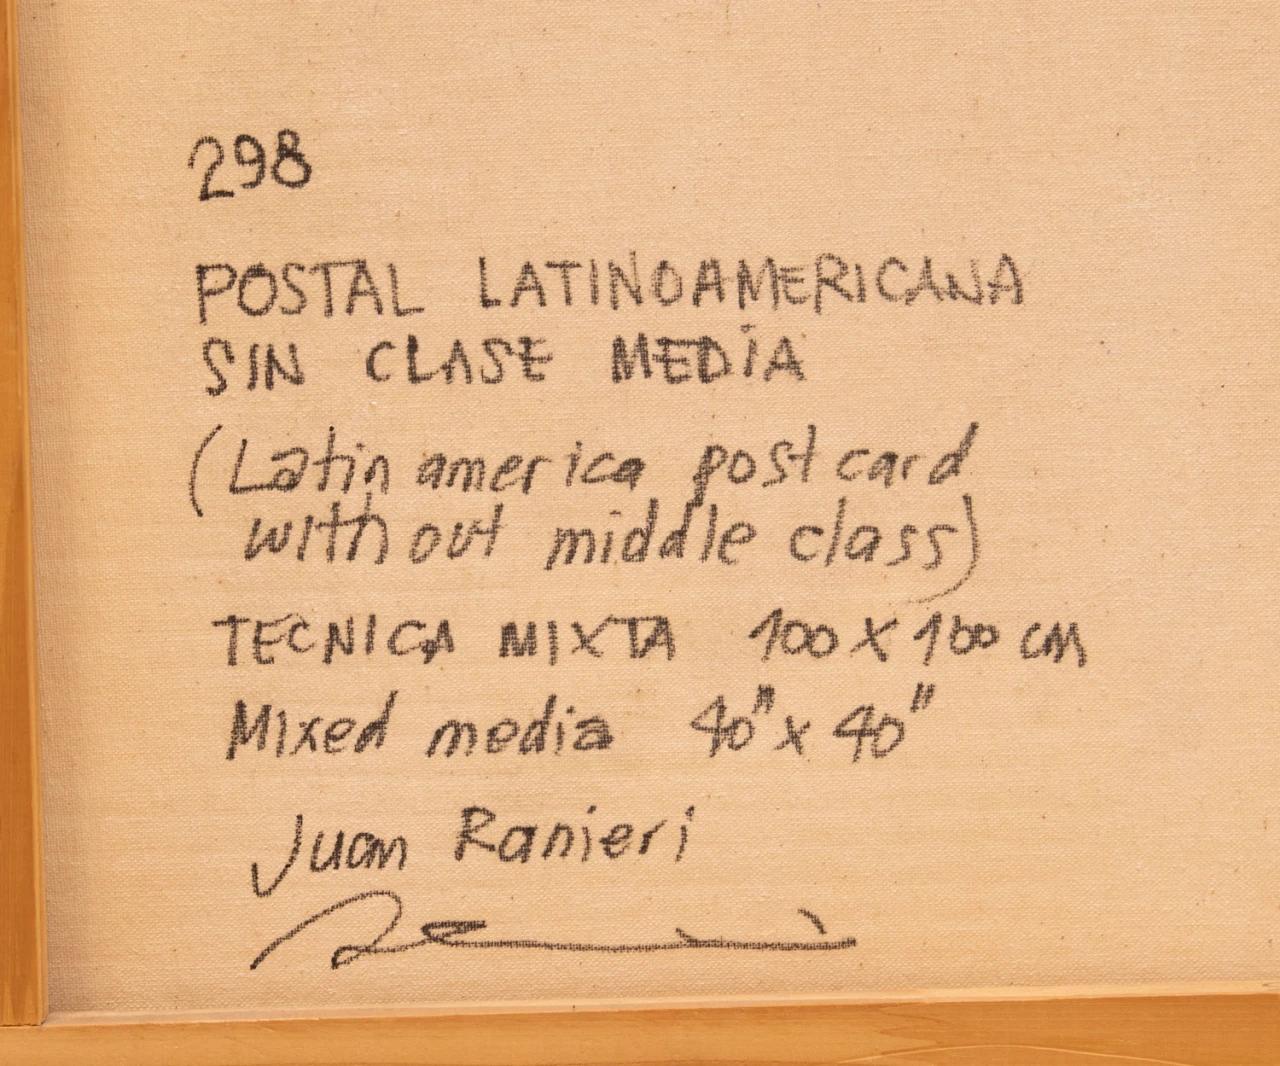 298
POSTAL LATINOAMERICANA
SIN CLASE MEDIA
(Latin america postcard
without middle class)
TECNICA MIXTA 100 X 100 CM
Mixed media 40" x 40"
Juan Ranieri